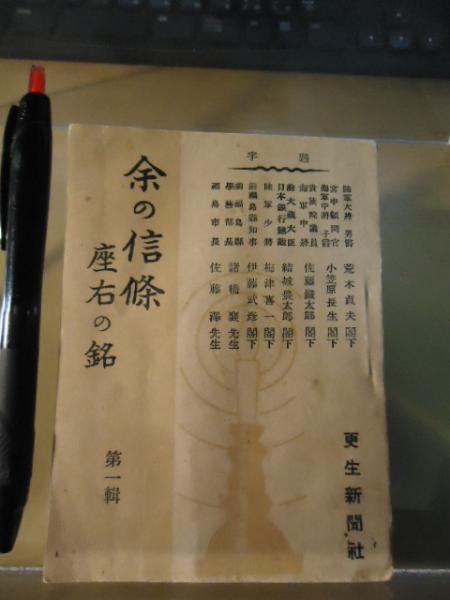 題字
陸軍大将 男爵 荒木貞夫閣下
宮中顧問官 海軍中将 子爵 小笠原長生閣下
貴族院議員 海軍中将 佐藤鐵太郎閣下
前大蔵大臣 日本銀行総裁 結城豊太郎閣下
陸軍少将 梅津喜一閣下
前福島縣知事 伊藤武彦閣下
前福島縣 學務部長 諸橋襄先生
福島市長 佐藤澤先生
余の信條
座右の銘
第一輯
更生新聞社